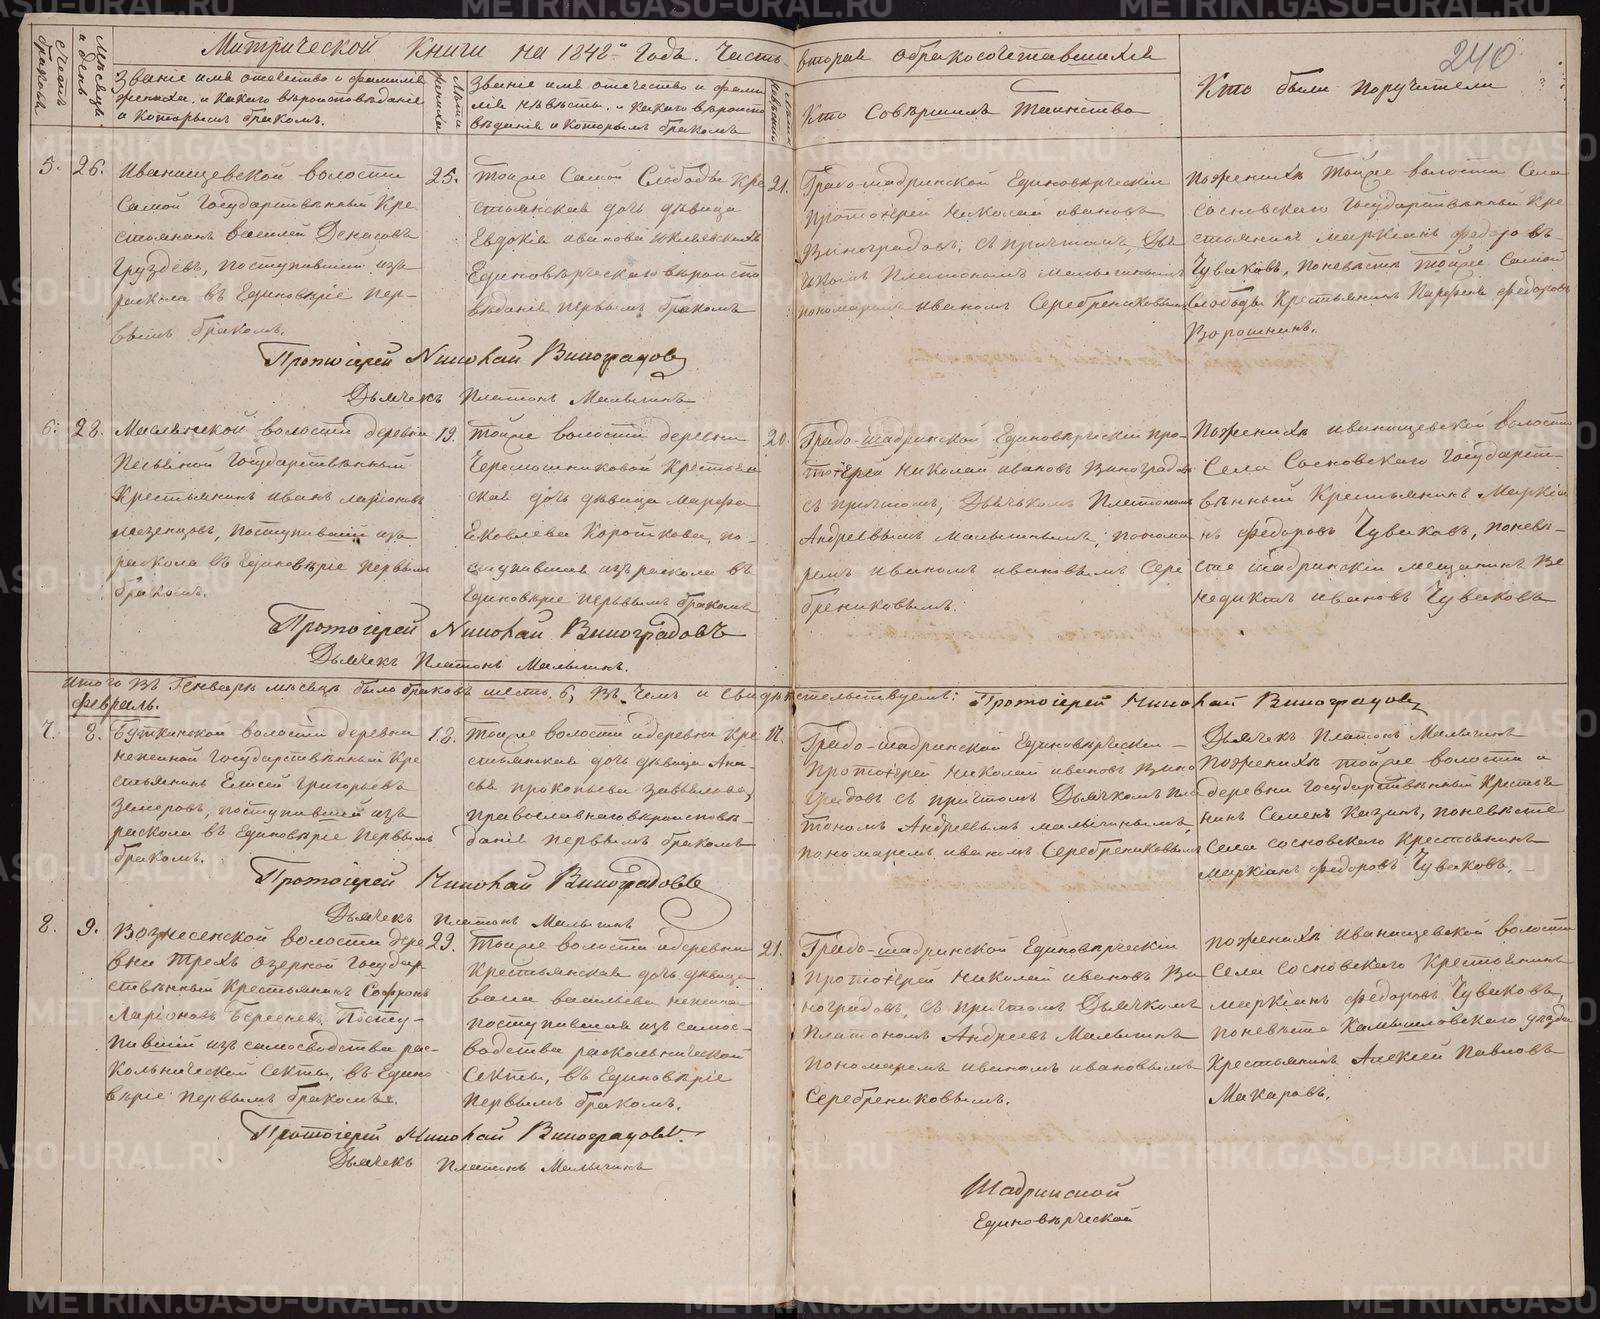 Метрической Книги на 1848-й Годъ. Часть вторая о бракосочетавшихся
240
Счетъ браковъ
Мѣсяцъ и день
Званіе имя отечество и фамилія
жениха, и какого вѣроисповѣданія
и которымъ бракомъ.
Лѣта жениха
Званіе имя, отечество и фами
лія невѣсты, и какого вѣроиспо
вѣданія и которымъ бракомъ
Лѣта невѣсты
Кто Совершилъ Таинство
Кто были поручители
5.
26.
Иванищевской волости
Самой Государственный Кре
стьянинъ Василей Денисовъ
Груздевъ, поступившій изъ
раскола въ Единовѣріе пер-
вымъ бракомъ.
25.
Тоиже Самой Слободы Кре
стьянская дочь дѣвица
Евдокія Иванова
Единовѣрческаго вѣроиспо
вѣданія первымъ бракомъ
21.
Градо-шадринской Единовѣрческіи
Протоіерей Николай Ивановъ
Виноградовъ, съ причтомъ, Дья
чкомъ Платономъ Малышкинымъ
пономаремъ Иваномъ Серебрениковымъ
Поженихѣ Тойже волости Села
Сосновскаго Государственный Кре
стьянинъ Маркіанъ Федоровъ
Чуваковъ, поневѣстѣ Тойже Самой
Слободы Крестьянинъ Парфенъ Федоровъ
Ворошнинъ.
Протоіерей Николай Виноградовъ
Дьячекъ Платонъ Малышкинъ
6.
28.
Маслянской волости деревни
Песьяной Государственный
Крестьянинъ Иванъ Ларіоновъ
поступившій изъ
раскола въ Единовѣріе первымъ
бракомъ.
19.
Тоиже волости деревни
Черемошниковой Крестьян
ская дочь дѣвица Марфа
Яковлева Короткова, по-
ступившая изъ раскола въ
Единовѣріе первымъ бракомъ
20.
Градо-шадринской Единовѣрческіи про-
тоіерей Николай Ивановъ Виноградовъ
съ причтомъ, Дьячькомъ Платономъ
Андреевымъ Малышкинымъ, понома
ремъ Иваномъ Ивановымъ Сере
брениковымъ.
Поженихѣ Иванищевской волости
Села Сосновскаго Государст-
венный Крестьянинъ Маркіа
нъ Федоровъ Чуваковъ, поневѣ-
сте шадринскіи мещанинъ Ве
недиктъ Ивановъ Чуваковъ
Протоіерей Николай Виноградовъ
Дьячекъ Платонъ Малышкинъ.
Итого въ Генварѣ мѣсяцѣ было браковъ шесть 6, Въ чемъ и Свидѣтельствуемъ: Протоіерей Николай Виноградовъ
Февраль.
Дьячекъ Платонъ Малышкинъ
7.
8.
Буткинской волости деревни
Государственный Кре
стьянинъ Елисей Григорьевъ
поступившій изъ
раскола въ Единовѣріе первымъ
бракомъ.
18.
Тоиже волости и деревни Кре
стьянская дочь дѣвица Ана
Прокопьева
православнаго вѣроисповѣ-
данія первымъ бракомъ
17.
Градо-шадринской Единовѣрческіи
Протоіерей Николай Ивановъ Вино
градовъ съ причтомъ Дьячкомъ Пла
тономъ Андреевымъ Малышкинымъ,
пономаремъ Иваномъ Серебрениковымъ
Поженихѣ тойже волости и
деревни Государственный Крестья
нинъ Семенъ Казинъ, поневѣсте
Села Сосновскаго Крестьянинъ
Маркіанъ Федоровъ Чуваковъ.
Протоіерей Николай Виноградовъ
Дьячекъ Платонъ Малышкинъ
8.
9.
Вознесенской волости дере
вни Трехъ озерной Государ-
ственный Крестьянинъ Софронъ
Ларіоновъ Береневъ. Посту-
пившій изъ самосводства рас-
кольнической Секты, въ Едино
вѣріе первымъ бракомъ.
23.
Тоиже волости и деревни
Крестьянская дочь дѣвица
Васильева
поступившая изъ самос-
водства раскольнической
Секты, въ Единовѣріе
первымъ бракомъ.
21.
Градо-шадринской Единовѣрческіи
Протоіерей Николай Ивановъ Ви
ноградовъ, съ причтомъ Дьячкомъ
Платономъ Андреевъ Малышкинъ
пономаремъ Иваномъ Ивановымъ
Серебрениковымъ.
Поженихѣ Иванищевской волости
Села Сосновскаго Крестьянинъ
Маркіанъ Федоровъ Чуваковъ,
поневѣсте Камышловскаго уѣзда
Крестьянинъ Алексей Павловъ
Макаровъ.
Протоіерей Николай Виноградовъ.
Дьячекъ Платонъ Малышкинъ
Шадринской
Единовѣрческой
METRIKI.GASO-URAL.RU